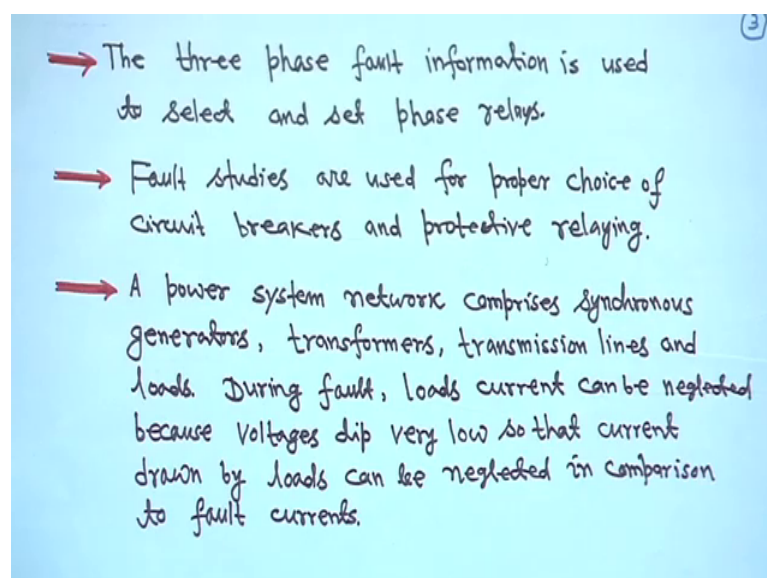 3
The three phase fault information is used
to select and set phase relays.
Fault studies are used for proper choice of
circuit breakers and protective relaying.
A power system network comprises synchronous
generators, transformers, transmission lines and
loads. During fault, loads current can be neglected
because voltages dip very low so that current
drawn by loads can be neglected in comparison
to fault currents.